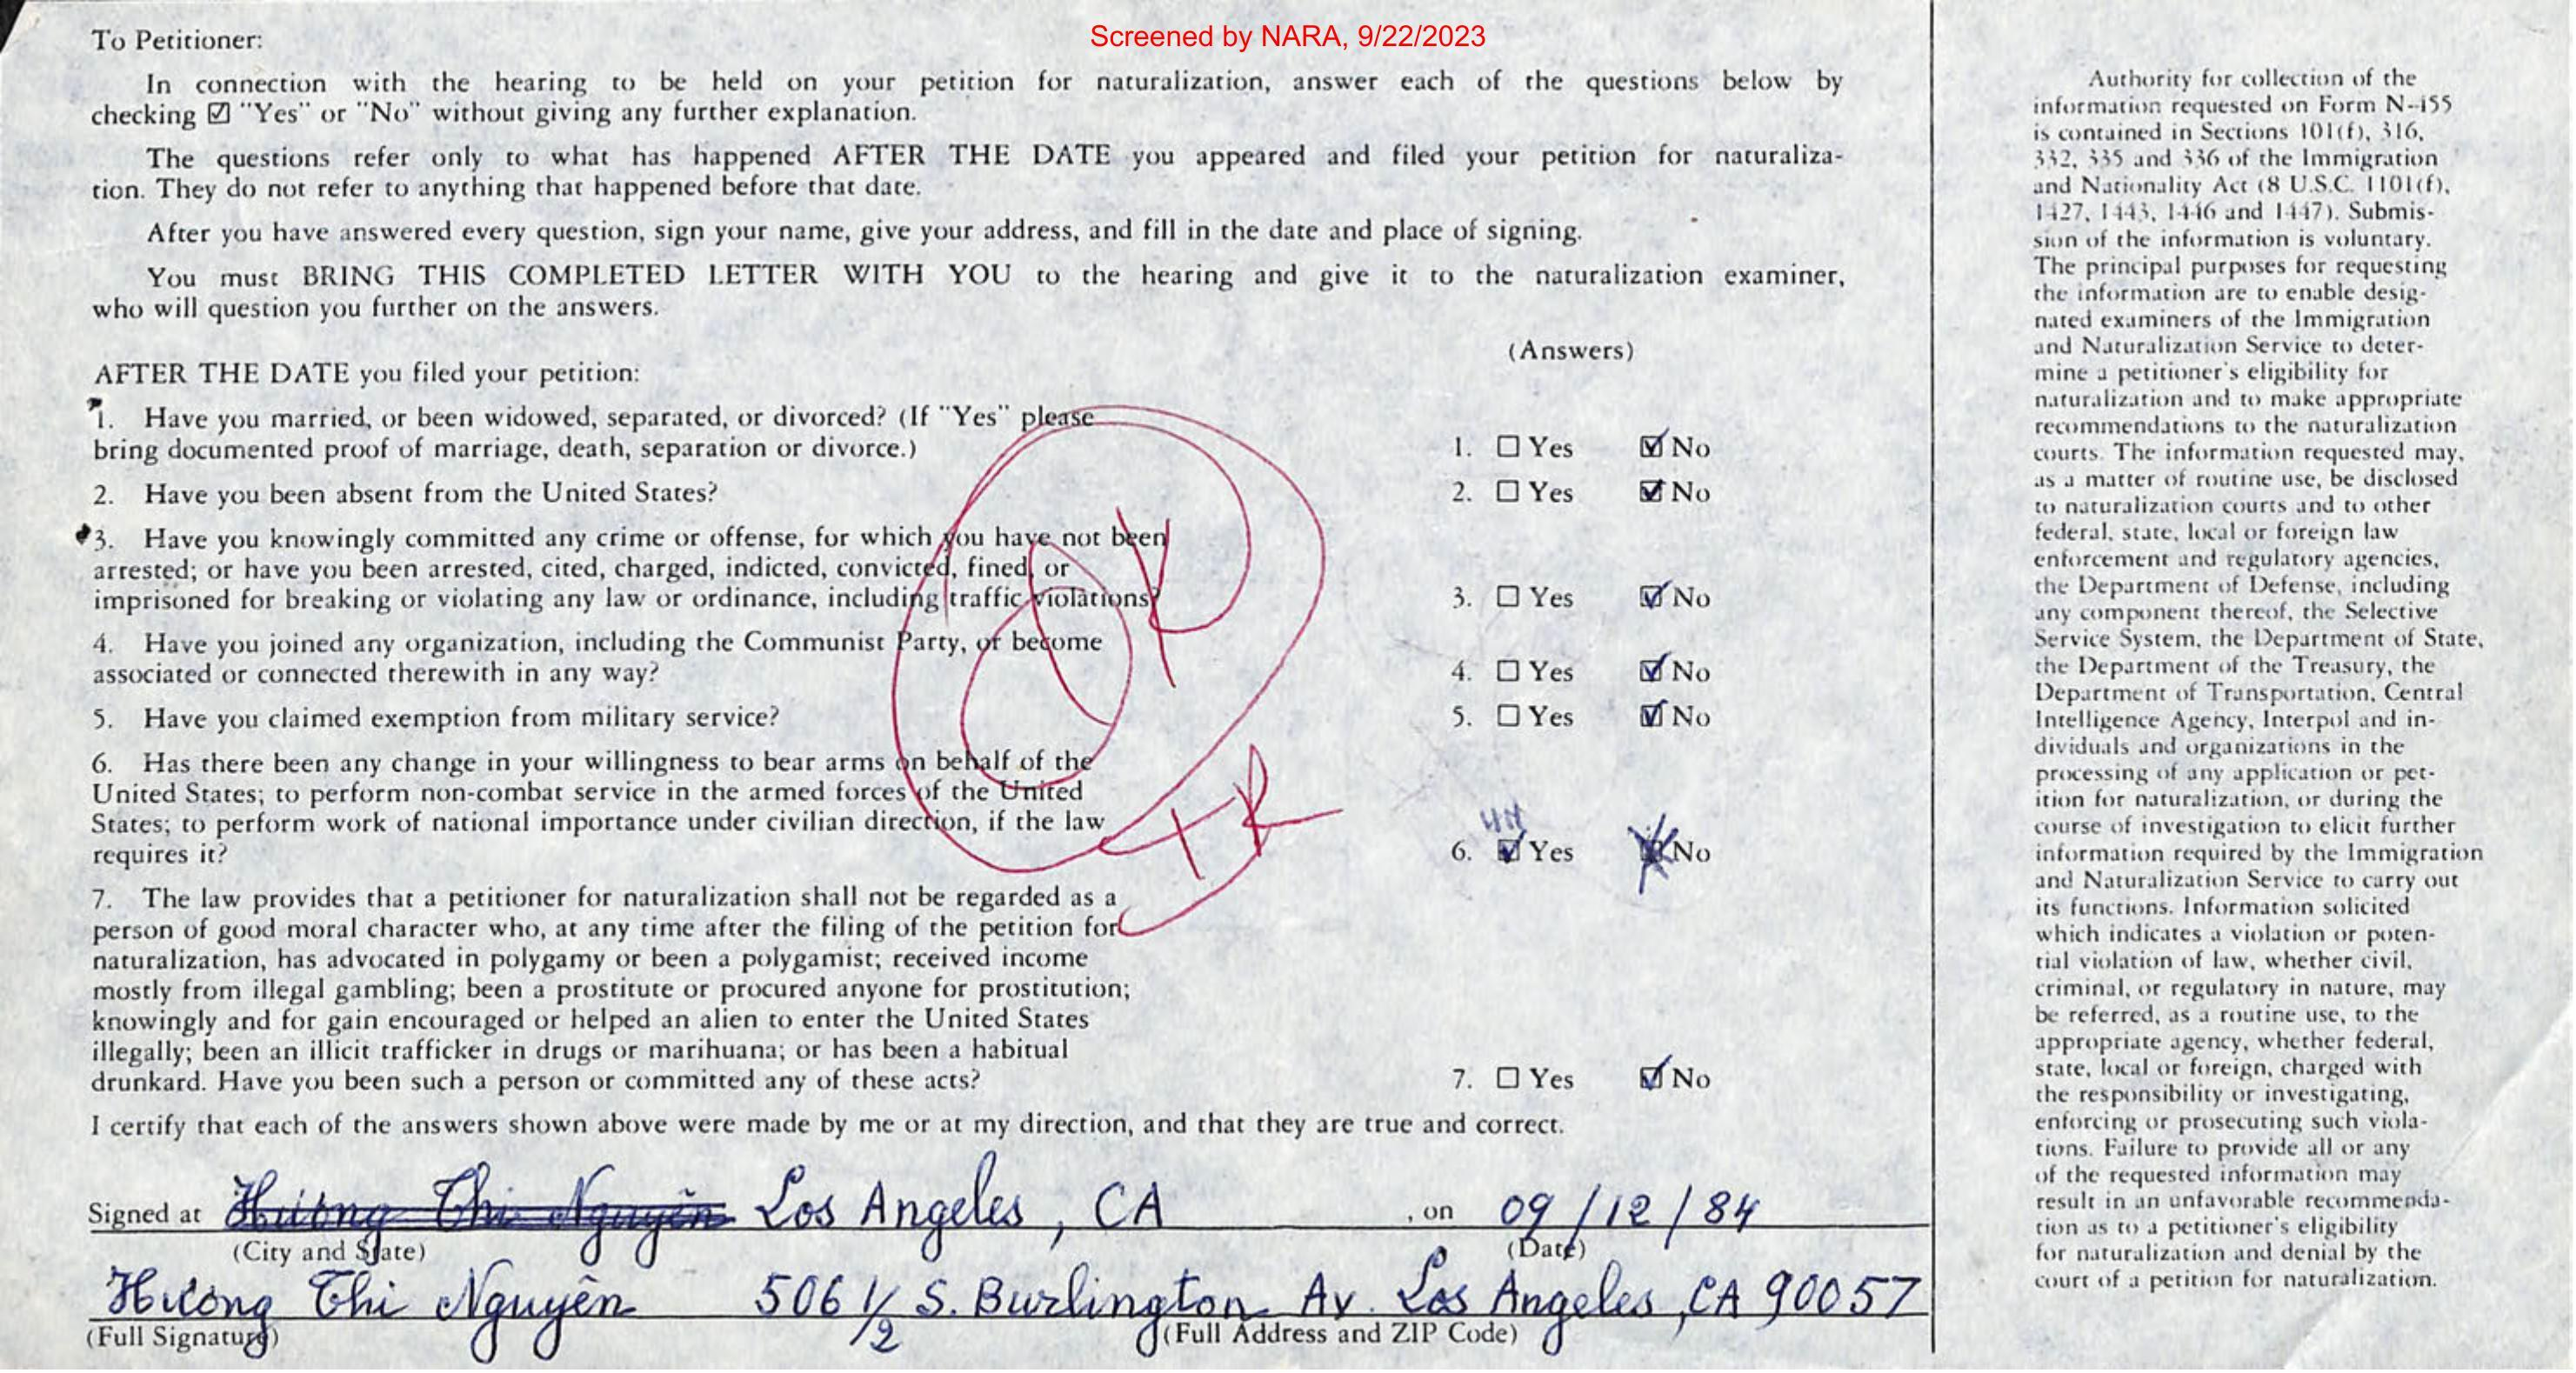 Screened by NARA, 9/22/2023
To Petitioner:
In connection with the hearing to be held on your petition for naturalization, answer each of the questions below by
checking ☑ "Yes" or "No" without giving any further explanation.
The questions refer only to what has happened AFTER THE DATE you appeared and filed your petition for naturaliza-
tion. They do not refer to anything that happened before that date.
After you have answered every question, sign your name, give your address, and fill in the date and place of signing.
You must BRING THIS COMPLETED LETTER WITH YOU to the hearing and give it to the naturalization examiner,
who will question you further on the answers.
(Answers)
AFTER THE DATE you filed your petition:
1. Have you married, or been widowed, separated, or divorced? (If "Yes" please
bring documented proof of marriage, death, separation or divorce.)
1. ☐ Yes ☑ No
2. Have you been absent from the United States?
2. ☐ Yes ☑ No
3. Have you knowingly committed any crime or offense, for which you have not been
arrested; or have you been arrested, cited, charged, indicted, convicted, fined, or
imprisoned for breaking or violating any law or ordinance, including traffic violations?
3. ☐ Yes ☑ No
4. Have you joined any organization, including the Communist Party, or become
associated or connected therewith in any way?
4. ☐ Yes ☑ No
5. Have you claimed exemption from military service?
5. ☐ Yes ☑ No
6. Has there been any change in your willingness to bear arms on behalf of the
United States; to perform non-combat service in the armed forces of the United
States; to perform work of national importance under civilian direction, if the law
requires it?
6. ☑ Yes No
7. The law provides that a petitioner for naturalization shall not be regarded as a
person of good moral character who, at any time after the filing of the petition for
naturalization, has advocated in polygamy or been a polygamist; received income
mostly from illegal gambling; been a prostitute or procured anyone for prostitution;
knowingly and for gain encouraged or helped an alien to enter the United States
illegally; been an illicit trafficker in drugs or marihuana; or has been a habitual
drunkard. Have you been such a person or committed any of these acts?
7. ☐ Yes ☑ No
I certify that each of the answers shown above were made by me or at my direction, and that they are true and correct.
Signed at Hương Thi Nguyên Los Angeles, CA , on 09/12/84
(City and State) (Date)
Hương Thi Nguyên 506 1/2 S. Burlington Av. Los Angeles, CA 90057
(Full Signature) (Full Address and ZIP Code)
Authority for collection of the
information requested on Form N-455
is contained in Sections 101(f), 316,
332, 335 and 336 of the Immigration
and Nationality Act (8 U.S.C. 1101(f),
1427, 1443, 1446 and 1447). Submis-
sion of the information is voluntary.
The principal purposes for requesting
the information are to enable desig-
nated examiners of the Immigration
and Naturalization Service to deter-
mine a petitioner's eligibility for
naturalization and to make appropriate
recommendations to the naturalization
courts. The information requested may,
as a matter of routine use, be disclosed
to naturalization courts and to other
federal, state, local or foreign law
enforcement and regulatory agencies,
the Department of Defense, including
any component thereof, the Selective
Service System, the Department of State,
the Department of the Treasury, the
Department of Transportation, Central
Intelligence Agency, Interpol and in-
dividuals and organizations in the
processing of any application or pet-
ition for naturalization, or during the
course of investigation to elicit further
information required by the Immigration
and Naturalization Service to carry out
its functions. Information solicited
which indicates a violation or poten-
tial violation of law, whether civil,
criminal, or regulatory in nature, may
be referred, as a routine use, to the
appropriate agency, whether federal,
state, local or foreign, charged with
the responsibility or investigating,
enforcing or prosecuting such viola-
tions. Failure to provide all or any
of the requested information may
result in an unfavorable recommenda-
tion as to a petitioner's eligibility
for naturalization and denial by the
court of a petition for naturalization.